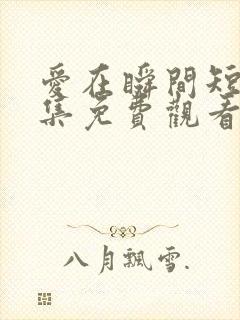 愛在瞬間短
集免費觀看
八月飄雪.